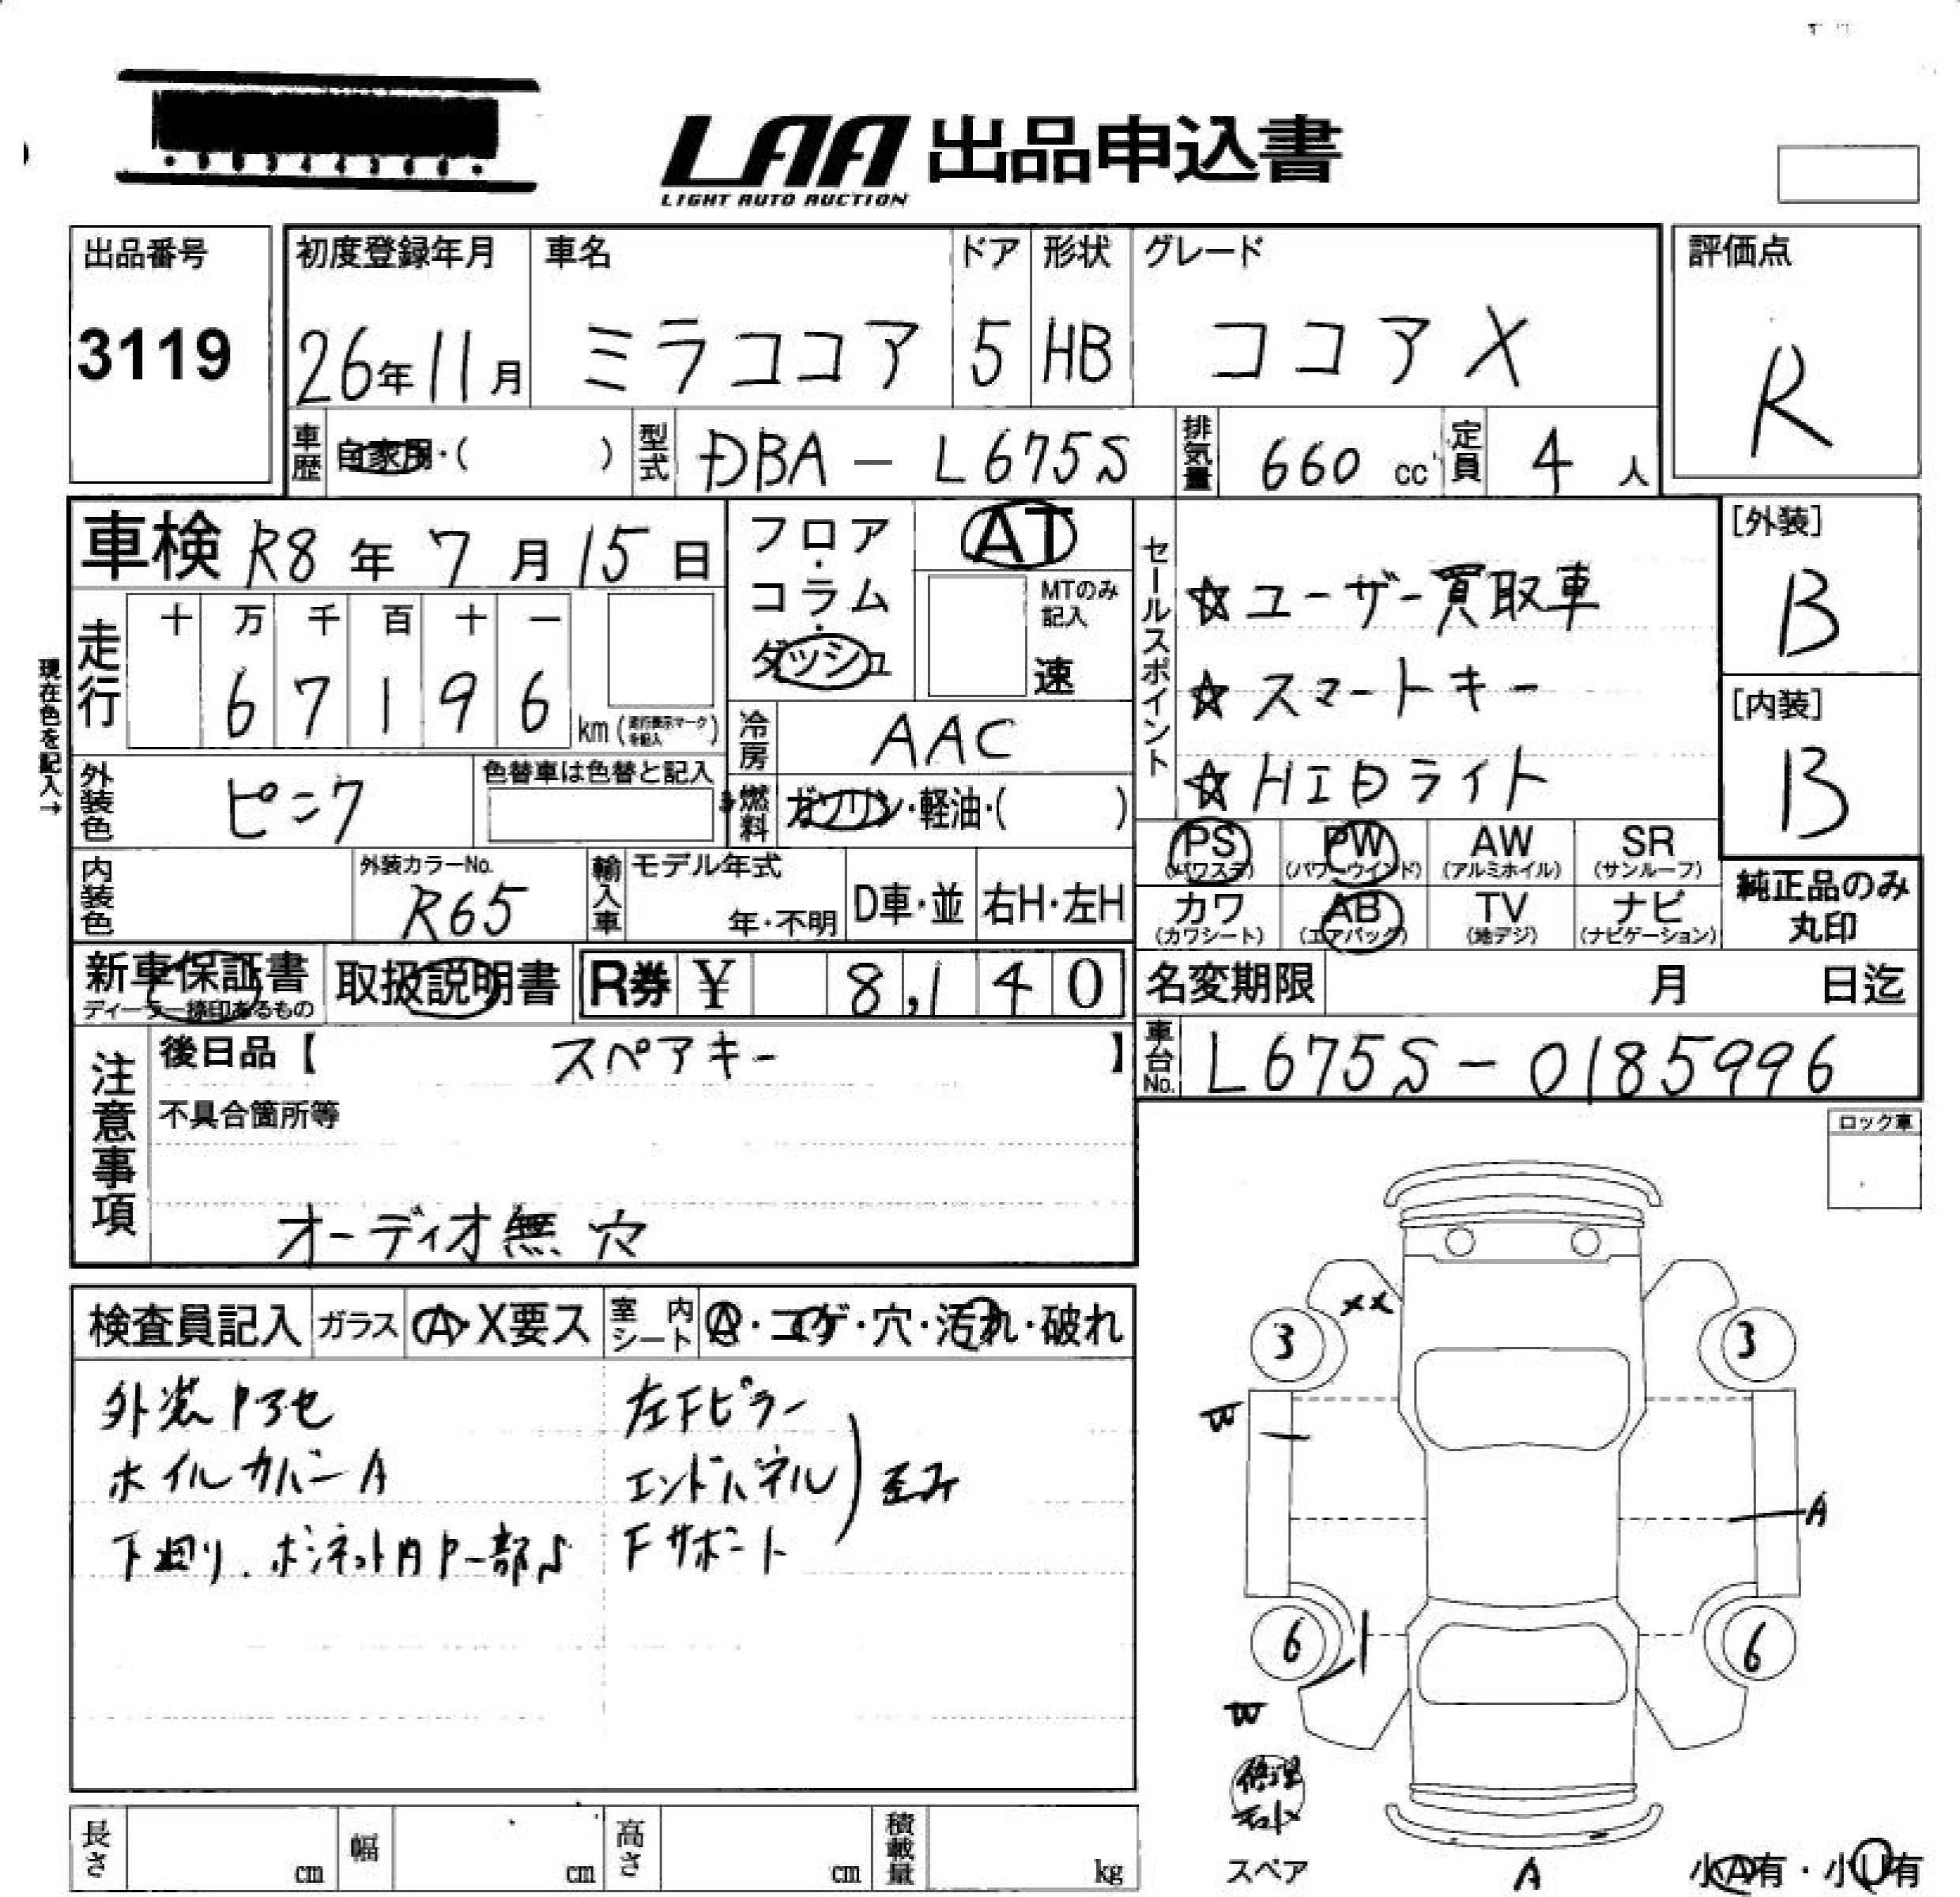 LAA 出品申込書
LIGHT AUTO AUCTION
出品番号
3119
初度登録年月
26年11月
車名
ミラココア
ドア
5
形状
HB
グレード
ココアX
評価点
R
車歴 自家用・( )
型式 DBA-L675S
排気量 660 cc
定員 4 人
車検 R8年7月15日
フロア・コラム・ダッシュ
AT
MTのみ記入
速
走行
十 万 千 百 十 一
6 7 1 9 6
km (走行表示マークを記入)
現在色を記入→
冷房 AAC
外装色 ピンク
色替車は色替と記入
燃料 ガソリン・軽油・( )
内装色
外装カラーNo.
R65
輸入車
モデル年式
年・不明
D車・並
右H・左H
セールスポイント
☆ユーザー買取車
☆スマートキー
☆HIDライト
[外装]
B
[内装]
B
PS (パワステ)
PW (パワーウインド)
AW (アルミホイル)
SR (サンルーフ)
カワ (カワシート)
AB (エアバッグ)
TV (地デジ)
ナビ (ナビゲーション)
純正品のみ丸印
新車保証書
ディーラー捺印あるもの
取扱説明書
R券 ¥ 8,140
名変期限 月 日迄
車台No. L675S-0185996
注意事項
後日品【 スペアキー 】
不具合箇所等
オーディオ無 穴
ロック車
検査員記入
ガラス A・X要ス
室内シート A・コゲ・穴・汚れ・破れ
外装Pヌセ
ホイルカバーA
下廻り、ボンネット内P一部S
左Fピラー
エンドパネル
Fサポート
歪み
XX
3
3
W
A
6
6
W
スペア
A
小A有・小U有
長さ cm
幅 cm
高さ cm
積載量 kg